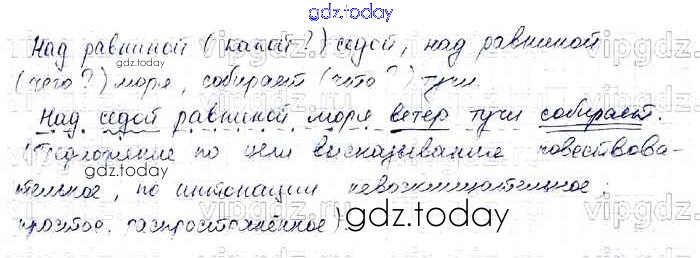 gdz.today
Над равниной (какой?) седой, над равниной
(чего?) моря, собирает (что?) тучи.
gdz.today
Над седой равниной моря ветер тучи собирает.
(Предложение по цели высказывания повествова-
тельное, по интонации невосклицательное,
gdz.today
простое, распространённое)
gdz.today